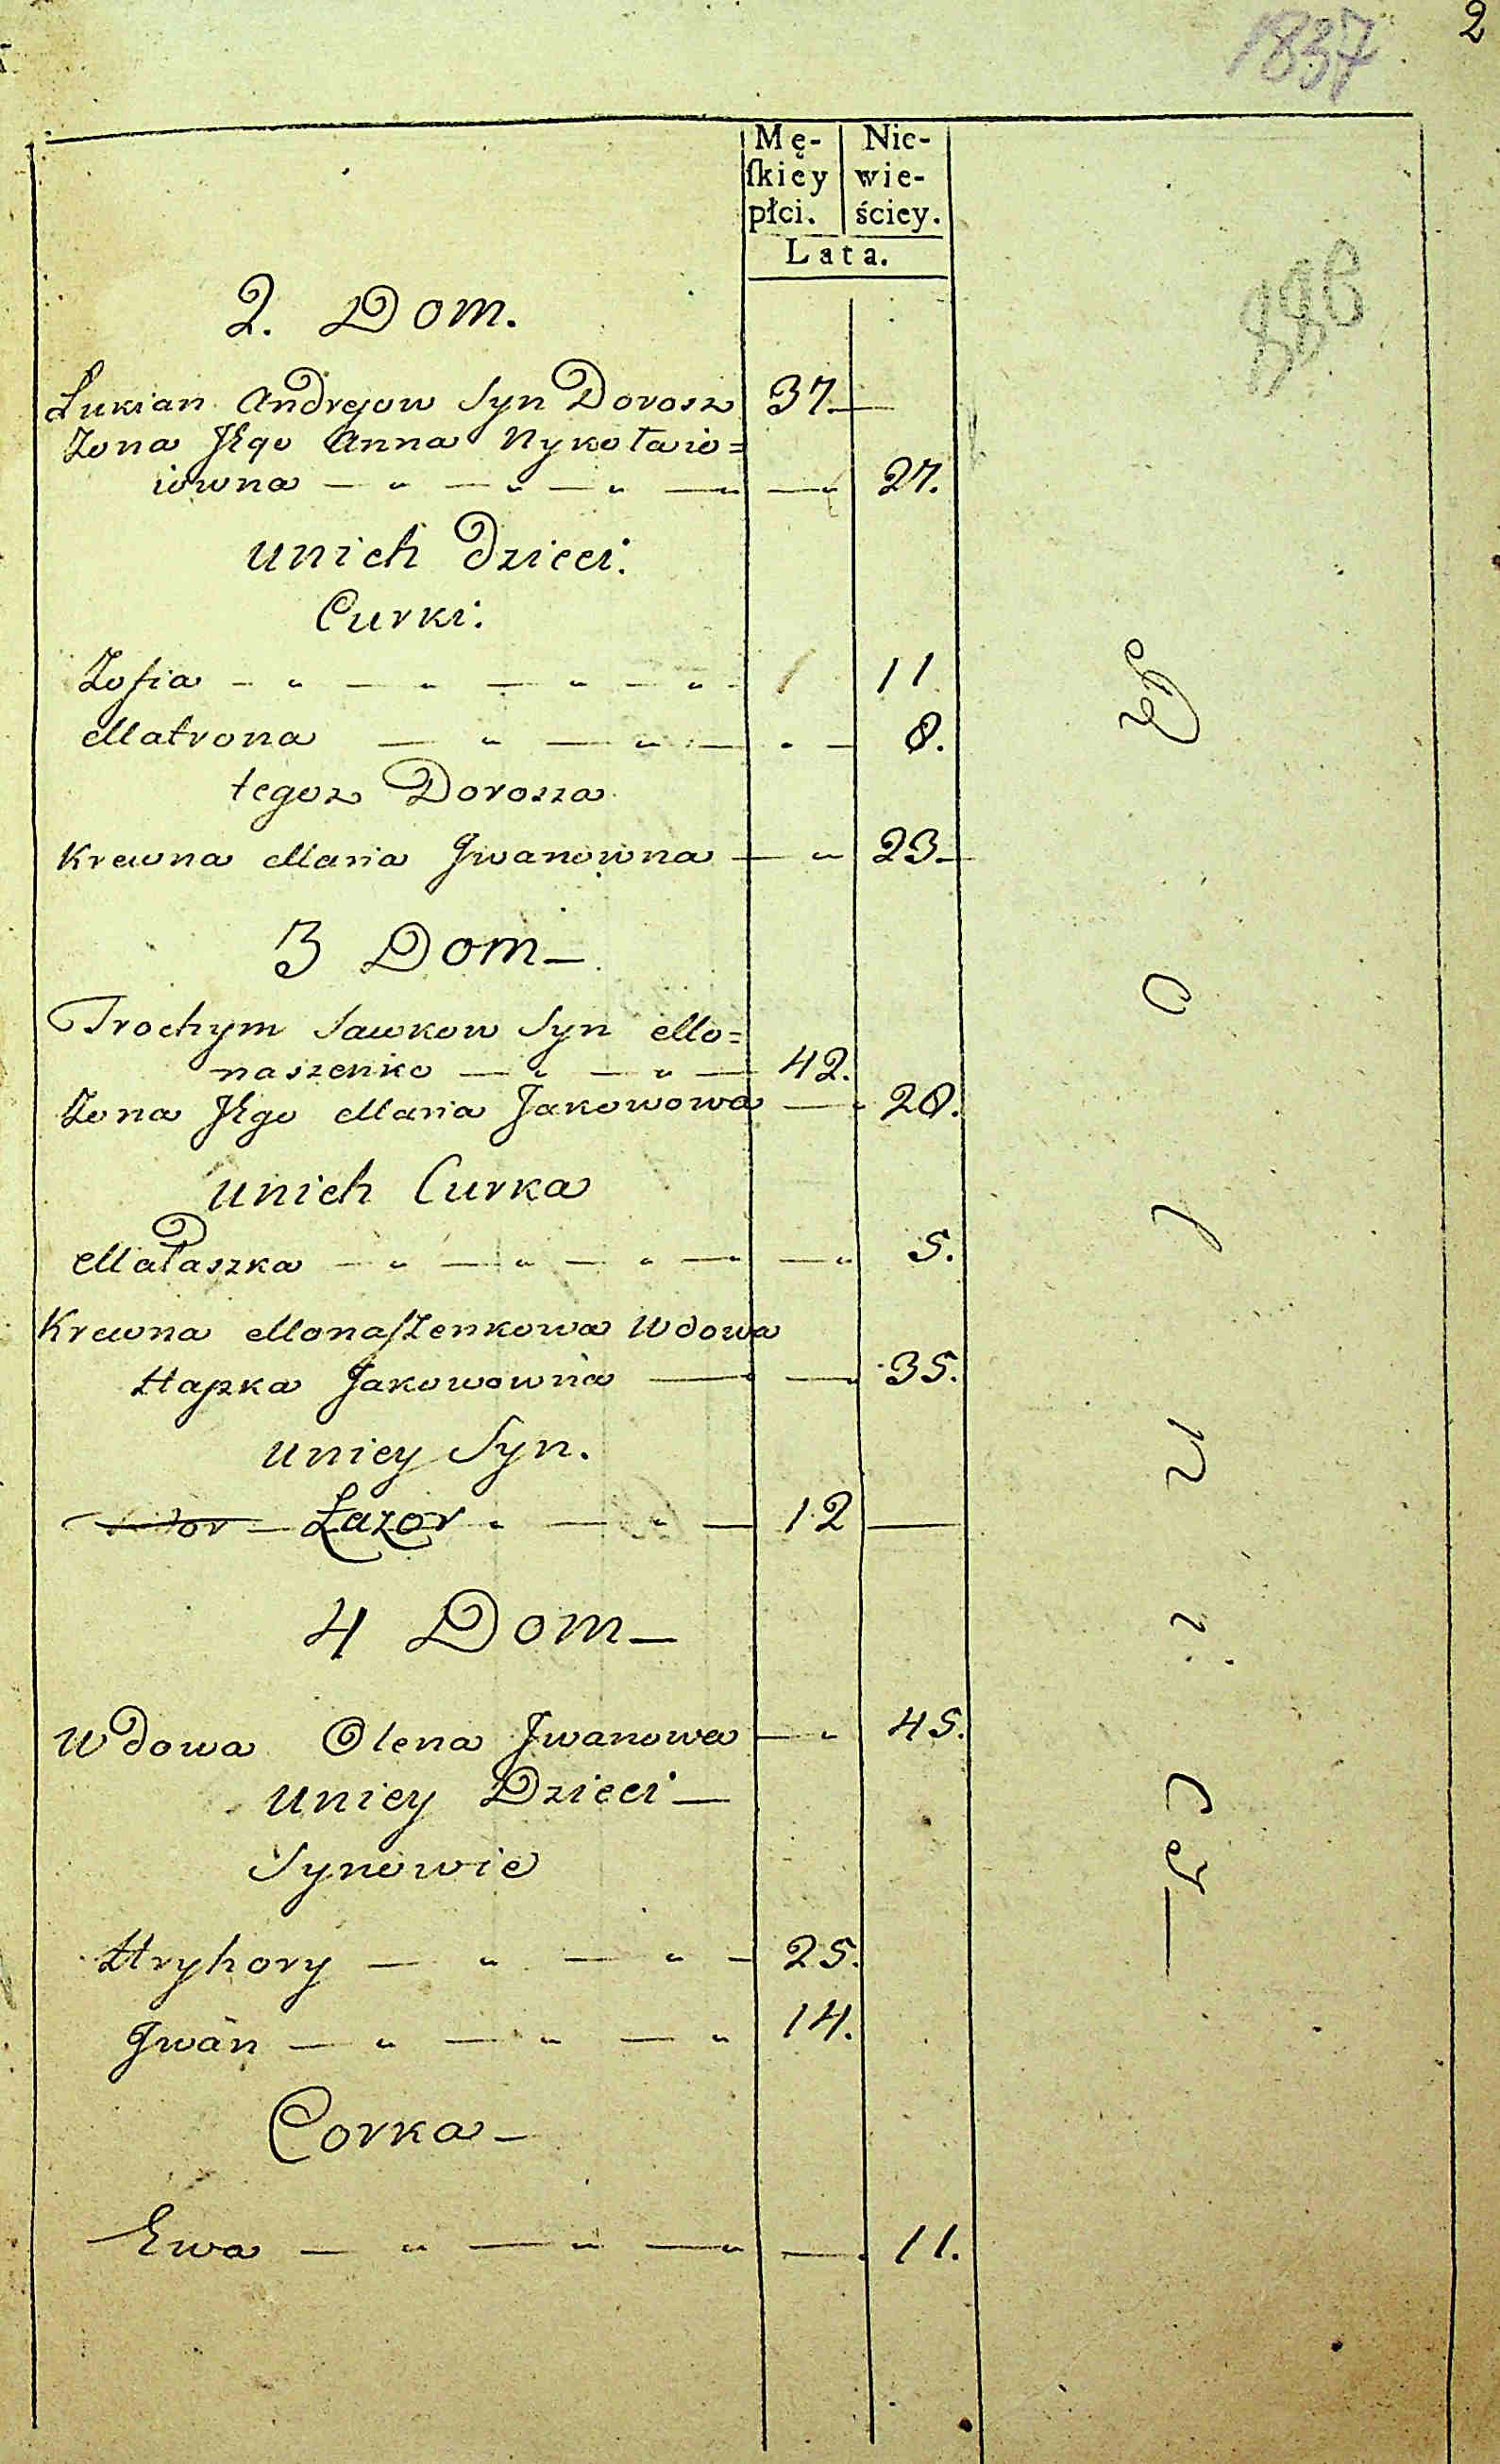 1837
2
Mę-
ſkiey
płci.
Nie-
wie-
ściey.
Lata.
2. Dom.
Łukian Andrejow Syn Dorosz 37.
Zona Jego Anna Nykołaio=
iowna 27.
unich Dzieci:
Curki:
Zofia 11
Matrona 8.
tegoz Dorosza
Krewna Maria Jwanowna 23
3 Dom
Trochym Sawkow Syn Mo=
naszenko 42.
Zona Jego Maria Jakowowa 28.
unich Curka
Małaszka 5.
Krewna Monaſzenkowa Wdowa
Hapka Jakowowna 35.
uniey Syn.
Łazor 12
4 Dom
Wdowa Olena Jwanowa 45.
uniey Dzieci
Synowie
Hryhory 25.
Jwan 14.
Corka
Ewa 11.